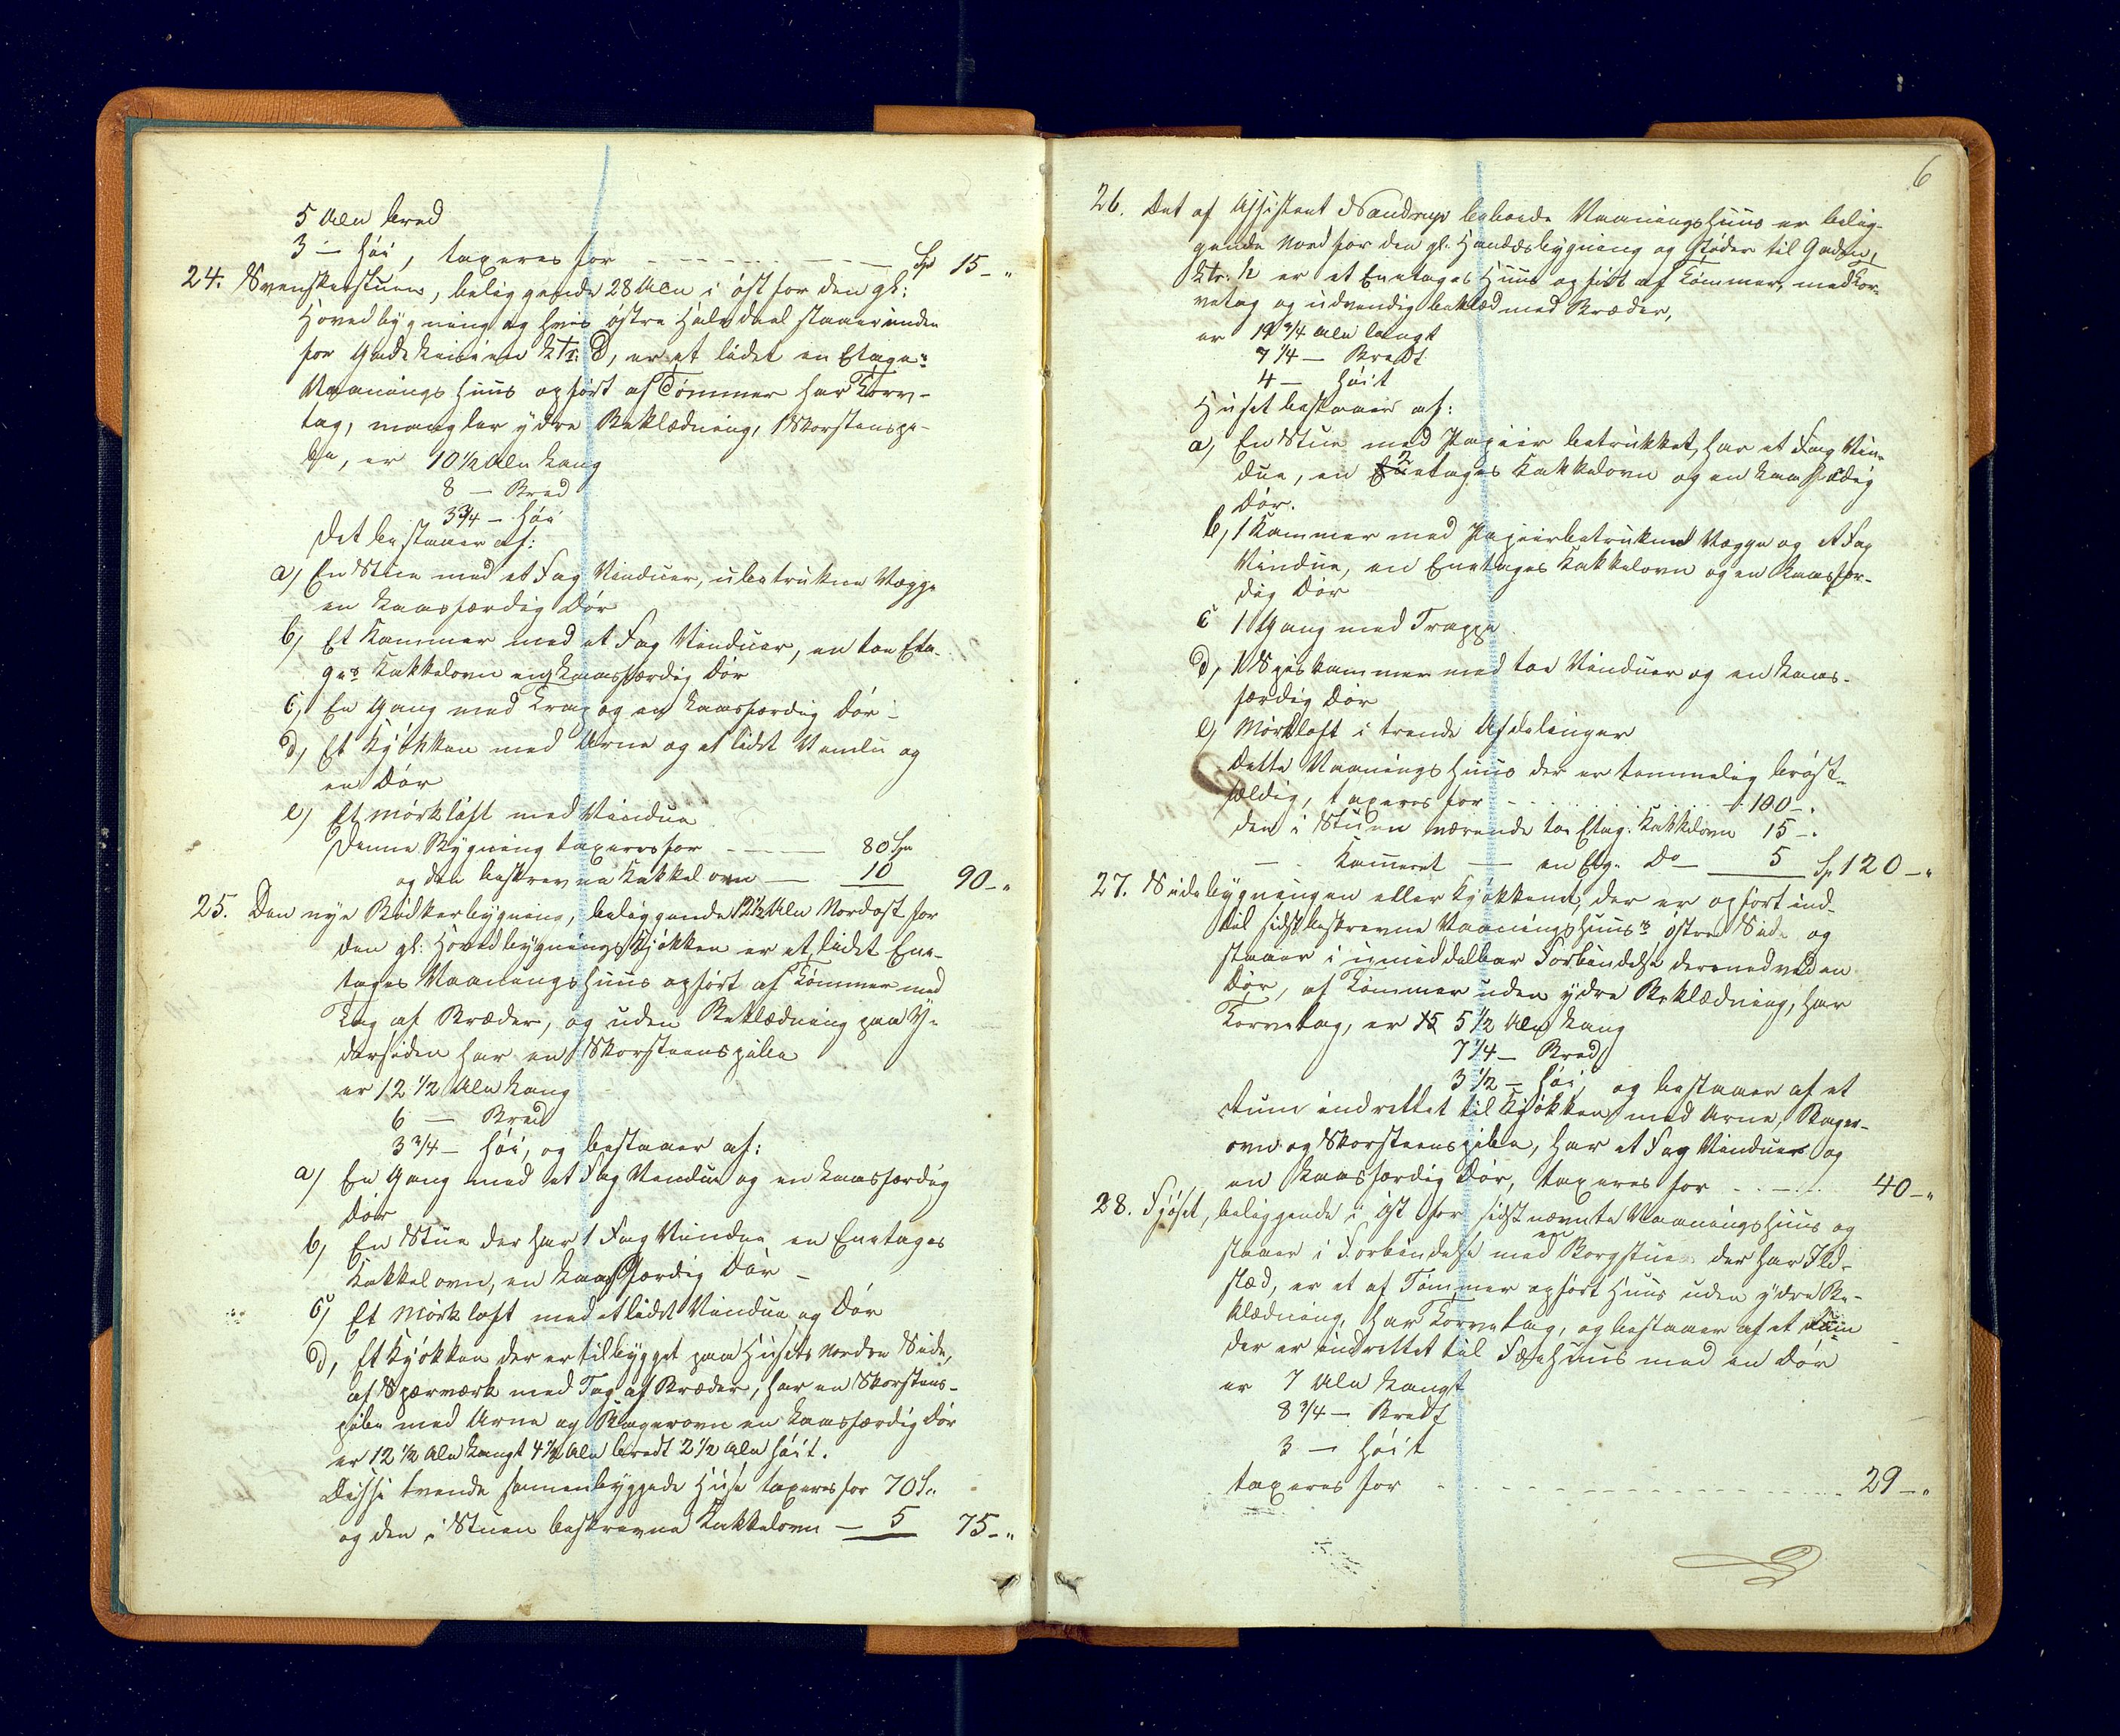 5 Alen bred
3 — høi, taxeres for - - - - - - Sp 15 - "
24. Svenskestuen, beliggende 28 Alen i øst for den gl:
Hovedbygning og hvis østre Halvdeel staaer inden
for Gade Linien Ltr: D, er et lidet en Etages
Vaanings Huus opført af Tømmer har Torv-
tag, mangler ydre Beklædning, 1 Skorstenspi-
be, er 10 1/2 Alen Lang
8 — Bred
3 3/4 — høi
Det bestaaer af:
a) En Stue med et Fag Vinduer, ubetrukne Vægge
en Laasfærdig Dør
b) Et Kammer med et Fag Vinduer, en toe Eta-
ges Kakkelovn en Laasfærdig Dør
c) En Gang med Trap og en Laasfærdig Dør -
d) Et Kjøkken med Arne og et lidet Vindu og
en Dør
e) Et mørkløft med Vindue
Denne Bygning taxeres for - - - 80 Sp
og den beskrevne Kakkelovn — 10 90 - "
25. Den nye Bødkerbygning, beliggende 12 1/2 Alen Nordost for
den gl: Hovedbygnings Kjøkken er et lidet Een-
tages Vaanings Huus opført af Tømmer med
Tag af Bræder, og uden Beklædning paa Y-
dersiden har en Skorsteenspibe
er 12 1/2 Alen Lang
6 — Bred
3 3/4 — høi, og bestaaer af:
a) En Gang med et Fag Vindue og en Laasfærdig
Dør
b) En Stue der har 1 Fag Vindue en Enetages
Kakkelovn, en Laasfærdig Dør -
c) Et Mørkloft med et lidet Vindue og Dør
d) Et Kjøkken der er tilbygget paa Husets Nordre Side,
af Spærværk med Tag af Bræder, har en Skorstens-
pibe med Arne og Bagerovn en Laasfærdig Dør
er 12 1/2 Alen Langt 4 1/2 Alen bredt 2 1/2 Alen høit.
Disse tvende sammenbyggede Huse taxeres for 70 S.
og den i Stuen beskrevne Kakkelovn — 5 75 - "
6
26. Det af Assistent Sandrup beboede Vaaningshuus er belig-
gende Nord for den gl. Hovedbygning og støder til Gaden,
Ltr. h er et Enetages Huus opført af Tømmer, med Tor-
vetag og udvendig beklædt med Bræder,
er 19 3/4 Alen langt
7 1/4 — Bredt
4 — høit
Huset bestaaer af:
a) En Stue med Papiir betrukket, har et Fag Vin-
due, en 2 etages Kakkelovn og en Laasfærdig
Dør.
b) 1 Kammer med Papiirbetrukne Vægge og et Fag
Vindue, en Enetages Kakkelovn og en Laasfær-
dig Dør
c 1 Gang med Trappe
d) 1 Spiskammer med toe Vinduer og en Laas-
færdig Dør
e) Mørkloft i trende Afdelinger
Dette Vaanings Huus der er temmelig brøst-
fældig, taxeres for - - - - - 100 - .
den i Stuen værende toe Etag. Kakkelovn 15 - .
— . Kammeret — en Etg. Do — 5 Sp 120 - "
27. Sidebygningen eller Kjøkkenet, der er opført ind-
til sidstbeskrevne Vaaningshuus's østre Side og
staaer i umiddelbar Forbindelse dermed ved en
Dør, af Tømmer uden ydre Beklædning, har
Torvetag, er 5 1/2 Alen Lang
7 1/4 — Bred
3 1/2 — høi, og bestaaer af et
Rum indrettet til Kjøkken med Arne, Bager-
ovn og Skorsteenspibe, har et Fag Vinduer og
en Laasfærdig Dør, taxeres for - - - 40 - "
28. Fjøset, beliggende i Øst for sidstnævnte Vaaningshuus og
staaer i Forbindelse med en Borgstue der har Ild-
sted, er et af Tømmer opført Huus uden ydre Be-
klædning, har Torvetag, og bestaaer af et Rum
der er indrettet til Fæehuus med en Dør
er 7 Alen Langt
8 3/4 — Bredt
3 — høit
taxeres for - - - - - - - - 29 - "